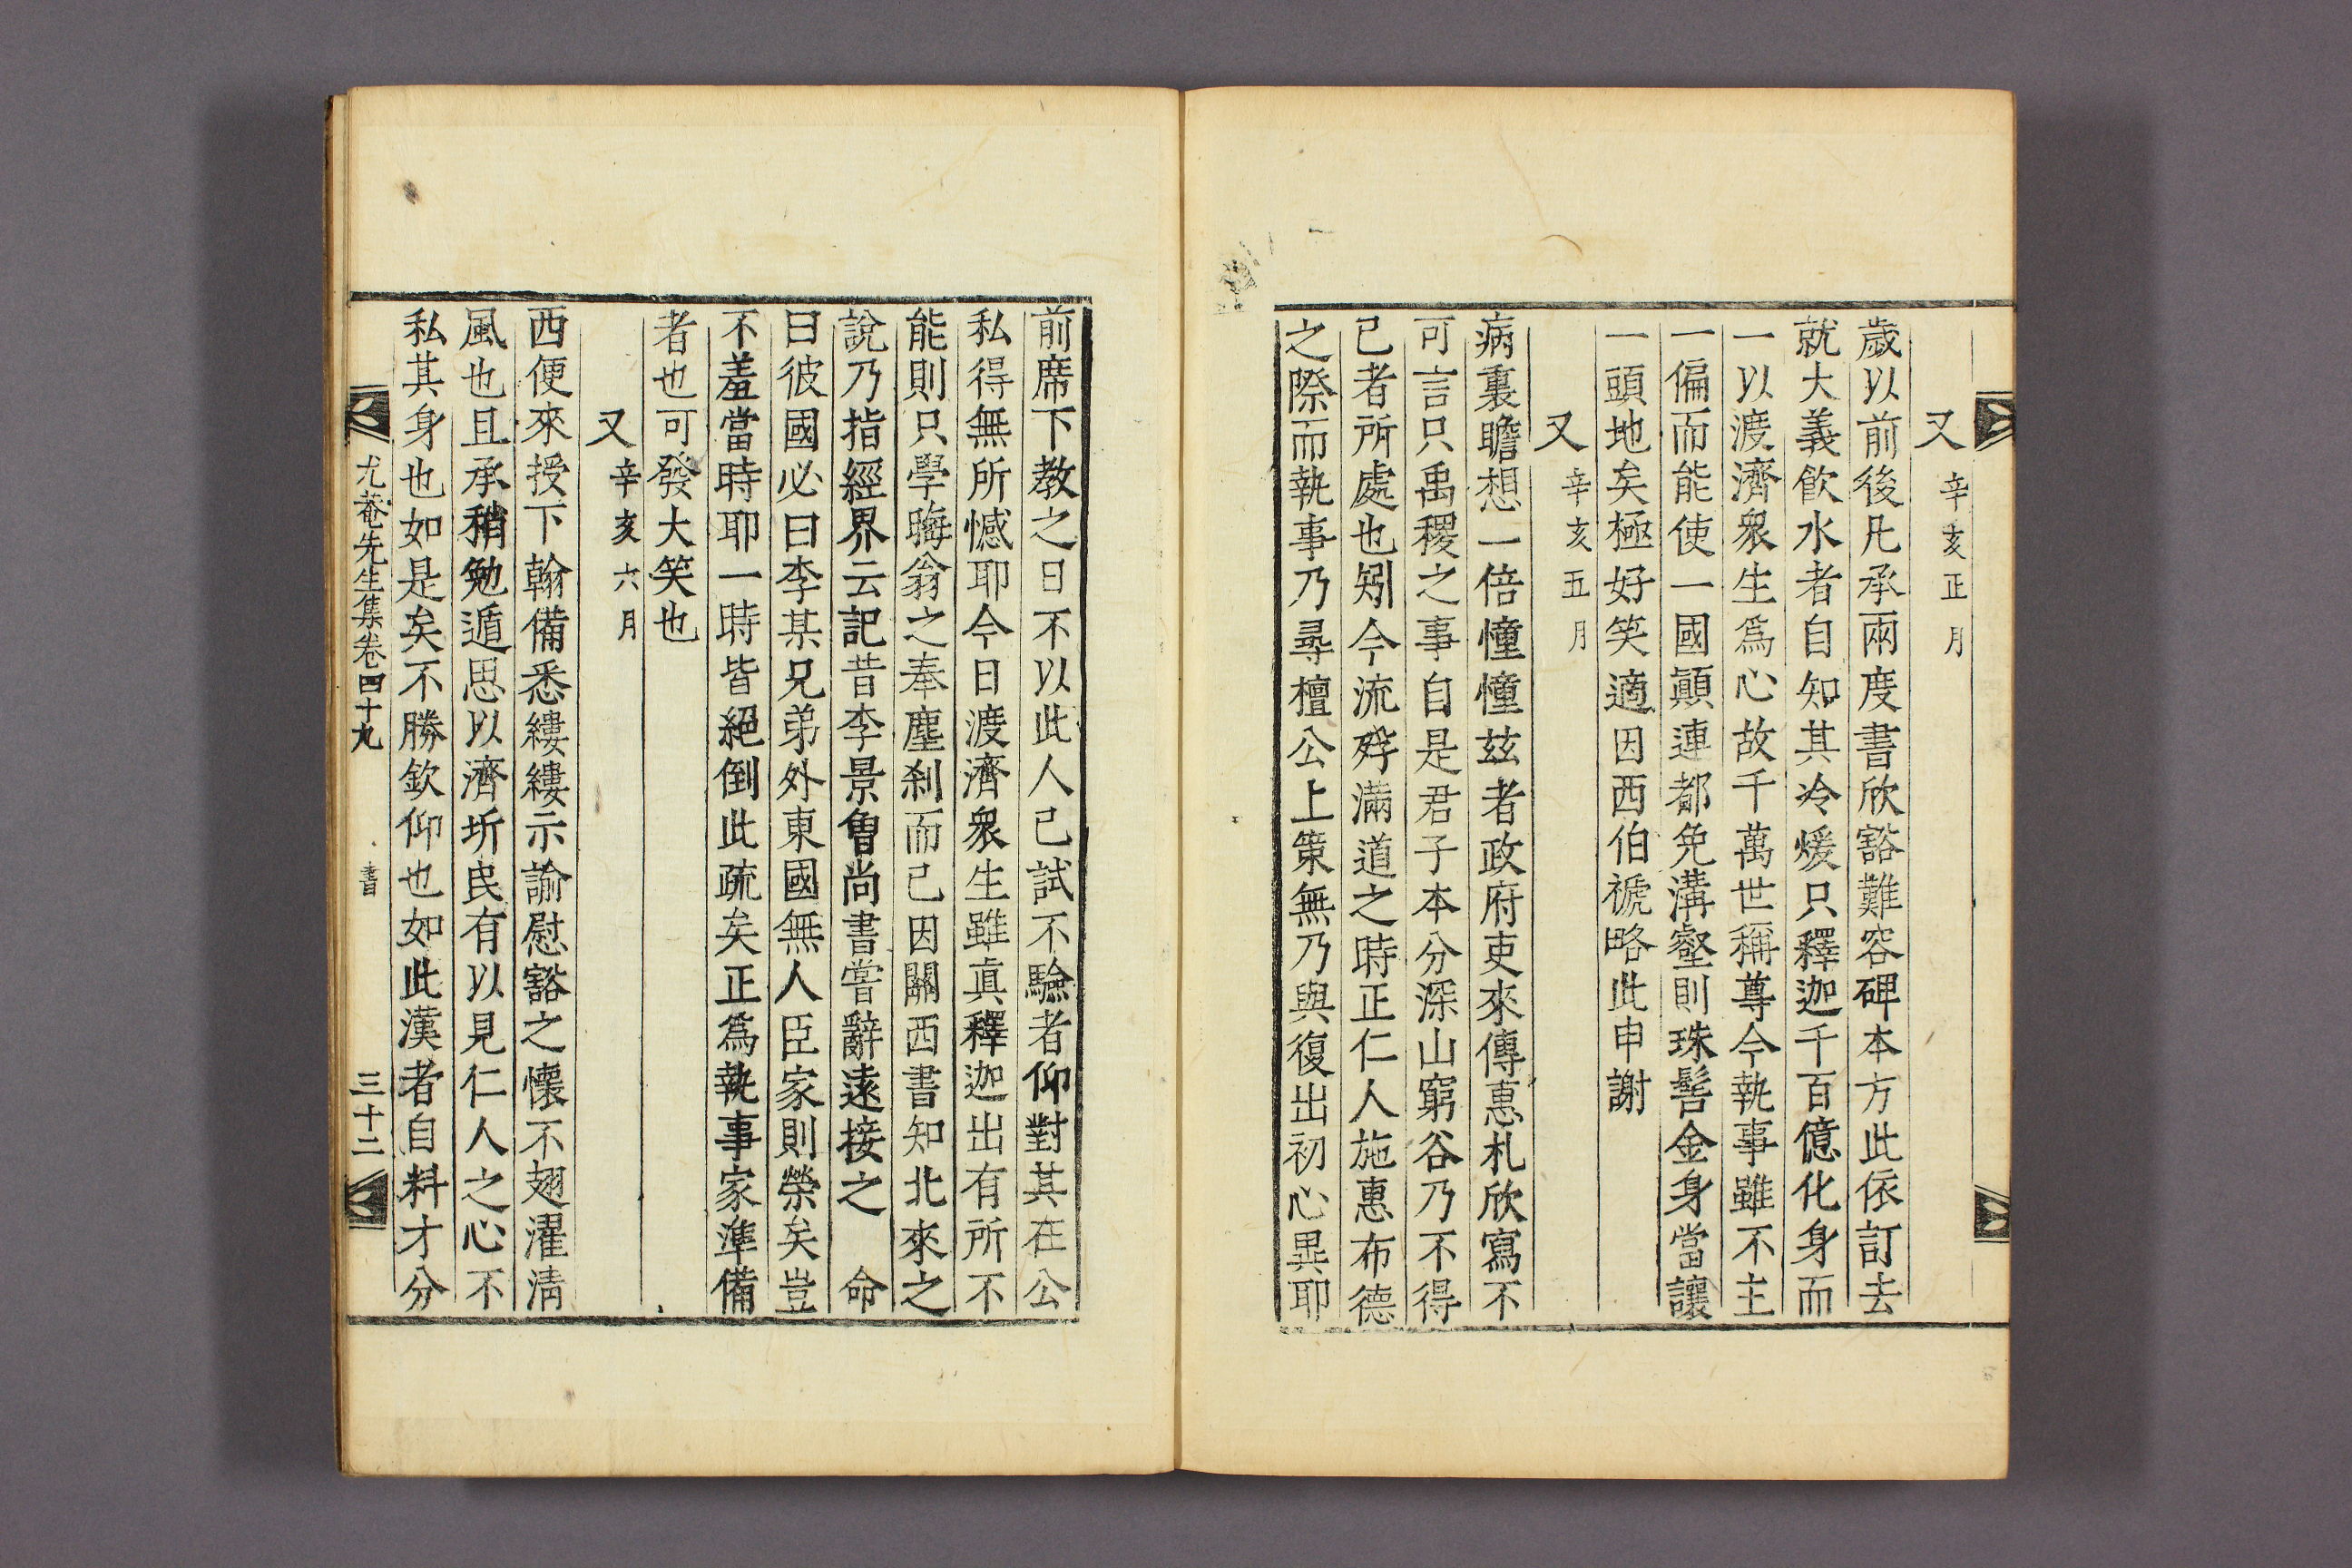 又 辛亥正月
歲以前後凡承兩度書欣豁難容碑本方此依訂去
就大義飮水者自知其冷煖只釋迦千百億化身而
一以渡濟衆生爲心故千萬世稱尊今執事雖不主
一偏而能使一國顚連都免溝壑則珠髻金身當讓
一頭地矣極好笑適因西伯褫略此申謝
又 辛亥五月
病裏瞻想一倍憧憧玆者政府吏來傳惠札欣寫不
可言只禹稷之事自是君子本分深山窮谷乃不得
已者所處也矧今流殍滿道之時正仁人施惠布德
之際而執事乃尋檀公上策無乃與復出初心異耶
前席下敎之日不以此人已試不驗者仰對其在公
私得無所憾耶今日渡濟衆生雖眞釋迦出有所不
能則只學晦翁之奉塵刹而已因關西書知北來之
說乃指經界云記昔李景魯尙書嘗辭遠接之 命
曰彼國必曰李某兄弟外東國無人臣家則榮矣豈
不羞當時耶一時皆絕倒此疏矣正爲執事家準備
者也可發大笑也
又 辛亥六月
西便來授下翰備悉縷縷示諭慰豁之懷不翅濯淸
風也且承稍勉遁思以濟圻民有以見仁人之心不
私其身也如是矣不勝欽仰也如此漢者自料才分
尤菴先生集卷四十九 書 三十二